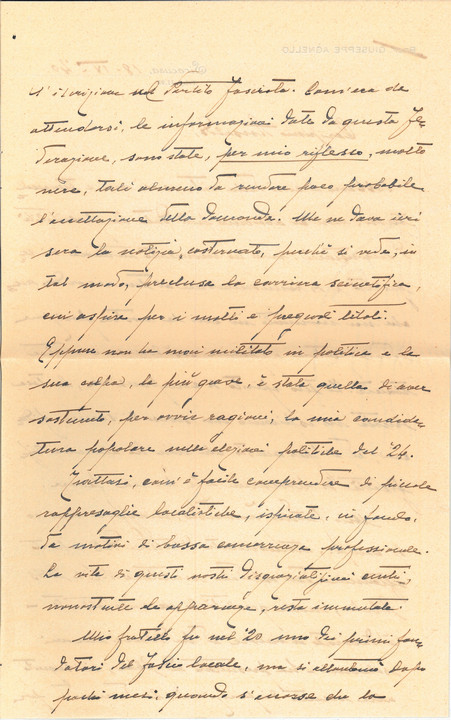 l'iscrizione nel Partito Fascista. Com'era da
attendersi, le informazioni date da questa Fe-
derazione, sono state, per mio riflesso, molto
nere, tali almeno da rendere poco probabile
l'accettazione della domanda. Me ne dava ieri
sera la notizia, costernato, perché si vede, in
tal modo, preclusa la carriera scientifica,
cui aspira per i molti e pregevoli titoli.
Eppure non ha mai militato in politica e la
sua colpa, la più grave, è stata quella di aver
sostenuto, per ovvie ragioni, la mia candida-
tura popolare nelle elezioni politiche del '24.
Trattasi, com'è facile comprendere di piccole
rappresaglie localistiche, ispirate, in fondo,
da motivi di bassa concorrenza professionale.
La vita di questi nostri disgraziatissimi centri,
nonostante le apparenze, resta immutata.
Mio fratello fu nel '20 uno dei primi fon-
datori del fascio locale, ma si allontanò dopo
pochi mesi, quando s'accorse che la